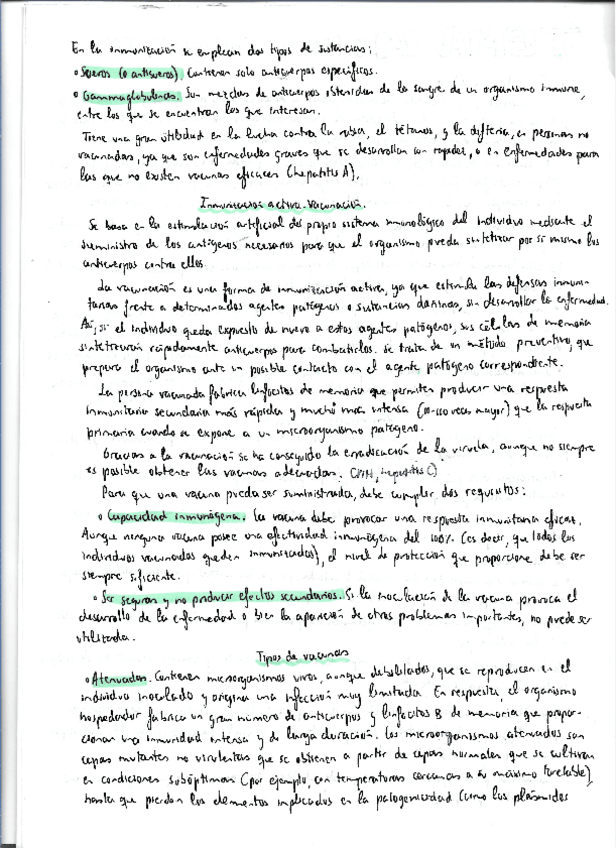 En la inmunización se emplean dos tipos de sustancias:
• Sueros (o antisueros). Contienen solo anticuerpos específicos.
• Gammaglobulinas. Son mezclas de anticuerpos obtenidas de la sangre de un organismo inmune,
entre los que se encuentran los que interesan.
Tiene una gran utilidad en la lucha contra la rabia, el tétanos, y la difteria, en personas no
vacunadas, ya que son enfermedades graves que se desarrollan con rapidez, o en enfermedades para
las que no existen vacunas eficaces (hepatitis A).
Inmunización activa. Vacunación.
Se basa en la estimulación artificial del propio sistema inmunológico del individuo mediante el
suministro de los antígenos necesarios para que el organismo pueda sintetizar por sí mismo los
anticuerpos contra ellos.
La vacunación es una forma de inmunización activa, ya que estimula las defensas inmuni-
tarias frente a determinados agentes patógenos o sustancias dañinas, sin desarrollar la enfermedad.
Así, si el individuo queda expuesto de nuevo a estos agentes patógenos, sus células de memoria
sintetizarán rápidamente anticuerpos para combatirlos. Se trata de un método preventivo, que
prepara el organismo ante un posible contacto con el agente patógeno correspondiente.
La persona vacunada fabrica linfocitos de memoria que permiten producir una respuesta
inmunitaria secundaria más rápida y mucho más intensa (10-100 veces mayor) que la respuesta
primaria cuando se expone a un microorganismo patógeno.
Gracias a la vacunación se ha conseguido la erradicación de la viruela, aunque no siempre
es posible obtener las vacunas adecuadas. hepatitis C)
Para que una vacuna pueda ser suministrada, debe cumplir dos requisitos:
• Capacidad inmunógena. La vacuna debe provocar una respuesta inmunitaria eficaz.
Aunque ninguna vacuna posee una efectividad inmunógena del 100% (es decir, que todos los
individuos vacunados queden inmunizados), el nivel de protección que proporcione debe ser
siempre suficiente.
• Ser seguras y no producir efectos secundarios. Si la inoculación de la vacuna provoca el
desarrollo de la enfermedad o bien la aparición de otros problemas importantes, no puede ser
utilizada.
Tipos de vacunas
• Atenuadas. Contienen microorganismos vivos, aunque debilitados, que se reproducen en el
individuo inoculado y origina una infección muy limitada. En respuesta, el organismo
hospedador fabrica un gran número de anticuerpos y linfocitos B de memoria que propor-
cionan una inmunidad intensa y de larga duración. Los microorganismos atenuados son
cepas mutantes no virulentas que se obtienen a partir de cepas normales que se cultivan
en condiciones subóptimas (por ejemplo, con temperaturas cercanas a su máximo tolerable),
hasta que pierden los elementos implicados en la patogenicidad (como los plásmidos